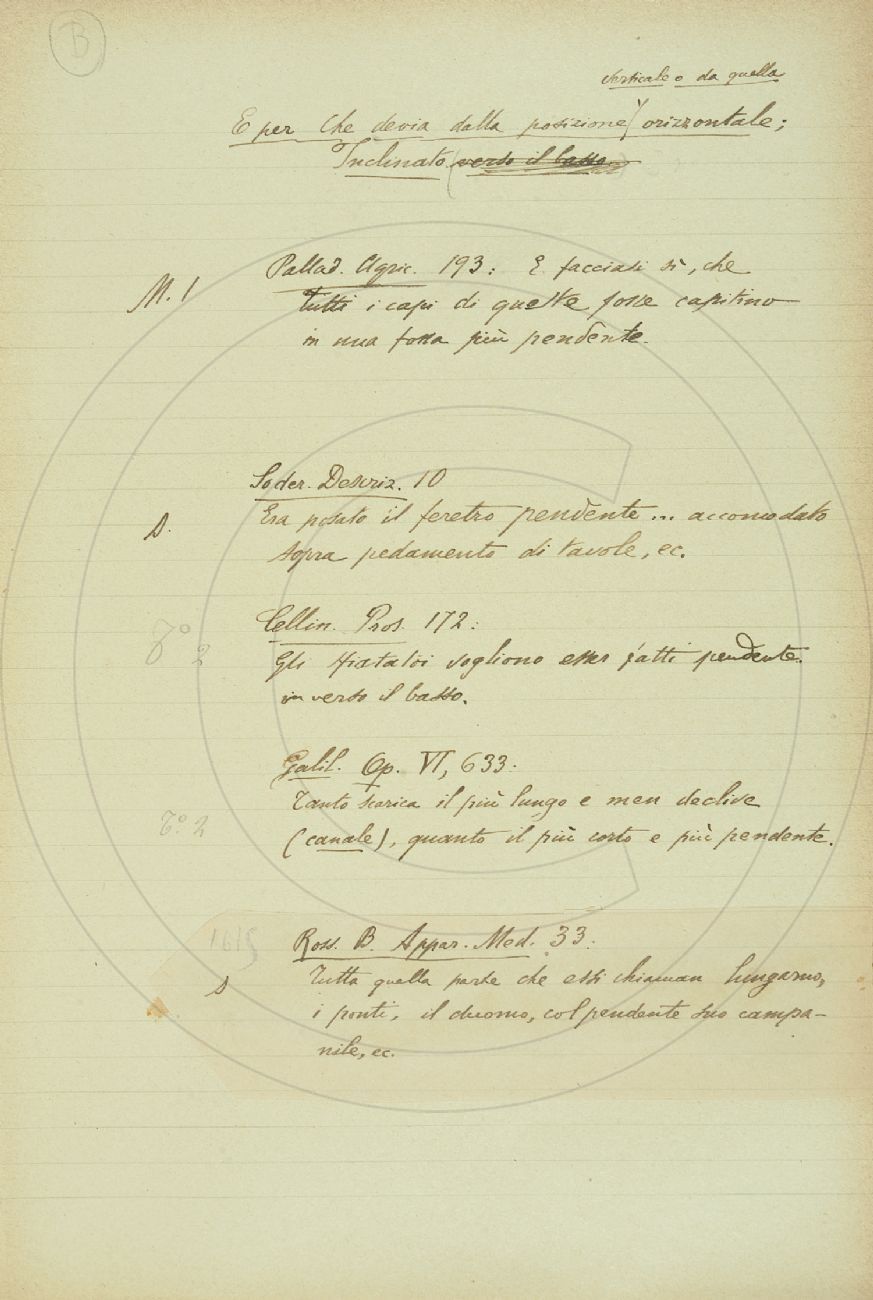 B
verticale o da quella
E per Che devia dalla posizione orizzontale;
Inclinato verso il basso
M. 1
Pallad. Agric. 193: E facciasi sì, che
tutti i capi di queste fosse capitino
in una fossa più pendente.
Soder. Descriz. 10
S.
Era posato il feretro pendente... accomodato
sopra pedamento di tavole, ec.
Cellin. Pros. 172:
Tº 2
Gli sfiatatoi vogliono esser fatti pendente.
in verso il basso.
Galil. Op. VI, 633:
Tanto scarica il più lungo e men declive
Tº. 2
(canale), quanto il più corto e più pendente.
Ross. B. Appar. Med. 33:
S
Tutta quella parte che essi chiaman lungarno,
i ponti, il duomo, col pendente suo campa-
nile, ec.